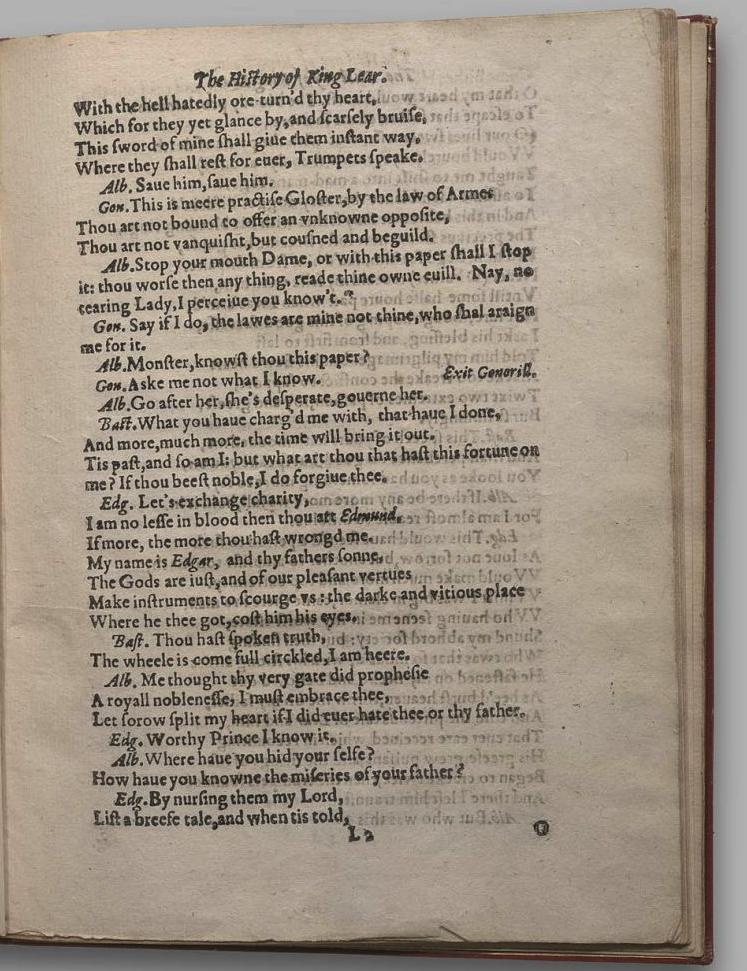 The Hiſtory of King Lear.
With the hell hatedly ore-turn'd thy heart,
Which for they yet glance by, and ſcarſely bruiſe,
This ſword of mine ſhall giue them inſtant way,
Where they ſhall reſt for euer, Trumpets ſpeake.
Alb. Saue him, ſaue him.
Gon. This is meere practiſe Gloſter, by the law of Armes
Thou art not bound to offer an vnknowne oppoſite,
Thou art not vanquiſht, but couſned and beguild.
Alb. Stop your mouth Dame, or with this paper ſhall I ſtop
it: thou worſe then any thing, reade thine owne euill. Nay, no
tearing Lady, I perceiue you know't.
Gon. Say if I do, the lawes are mine not thine, who ſhal araign
me for it.
Alb. Monſter, knowſt thou this paper?
Gon. Aske me not what I know. Exit Gonorill.
Alb. Go after her, ſhe's deſperate, gouerne her.
Baſt. What you haue charg'd me with, that haue I done,
And more, much more, the time will bring it out.
Tis paſt, and ſo am I: but what art thou that haſt this fortune on
me? If thou beeſt noble, I do forgiue thee.
Edg. Let's exchange charity,
I am no leſſe in blood then thou art Edmund,
If more, the more thou haſt wrongd me.
My name is Edgar, and thy fathers ſonne,
The Gods are iuſt, and of our pleaſant vertues
Make inſtruments to ſcourge vs: the darke and vitious place
Where he thee got, coſt him his eyes.
Baſt. Thou haſt ſpoken truth,
The wheele is come full circkled, I am heere.
Alb. Me thought thy very gate did propheſie
A royall nobleneſſe, I muſt embrace thee,
Let ſorow ſplit my heart if I did euer hate thee or thy father.
Edg. Worthy Prince I know it.
Alb. Where haue you hid your ſelfe?
How haue you knowne the miſeries of your father?
Edg. By nurſing them my Lord,
Liſt a breefe tale, and when tis told,
L2 O